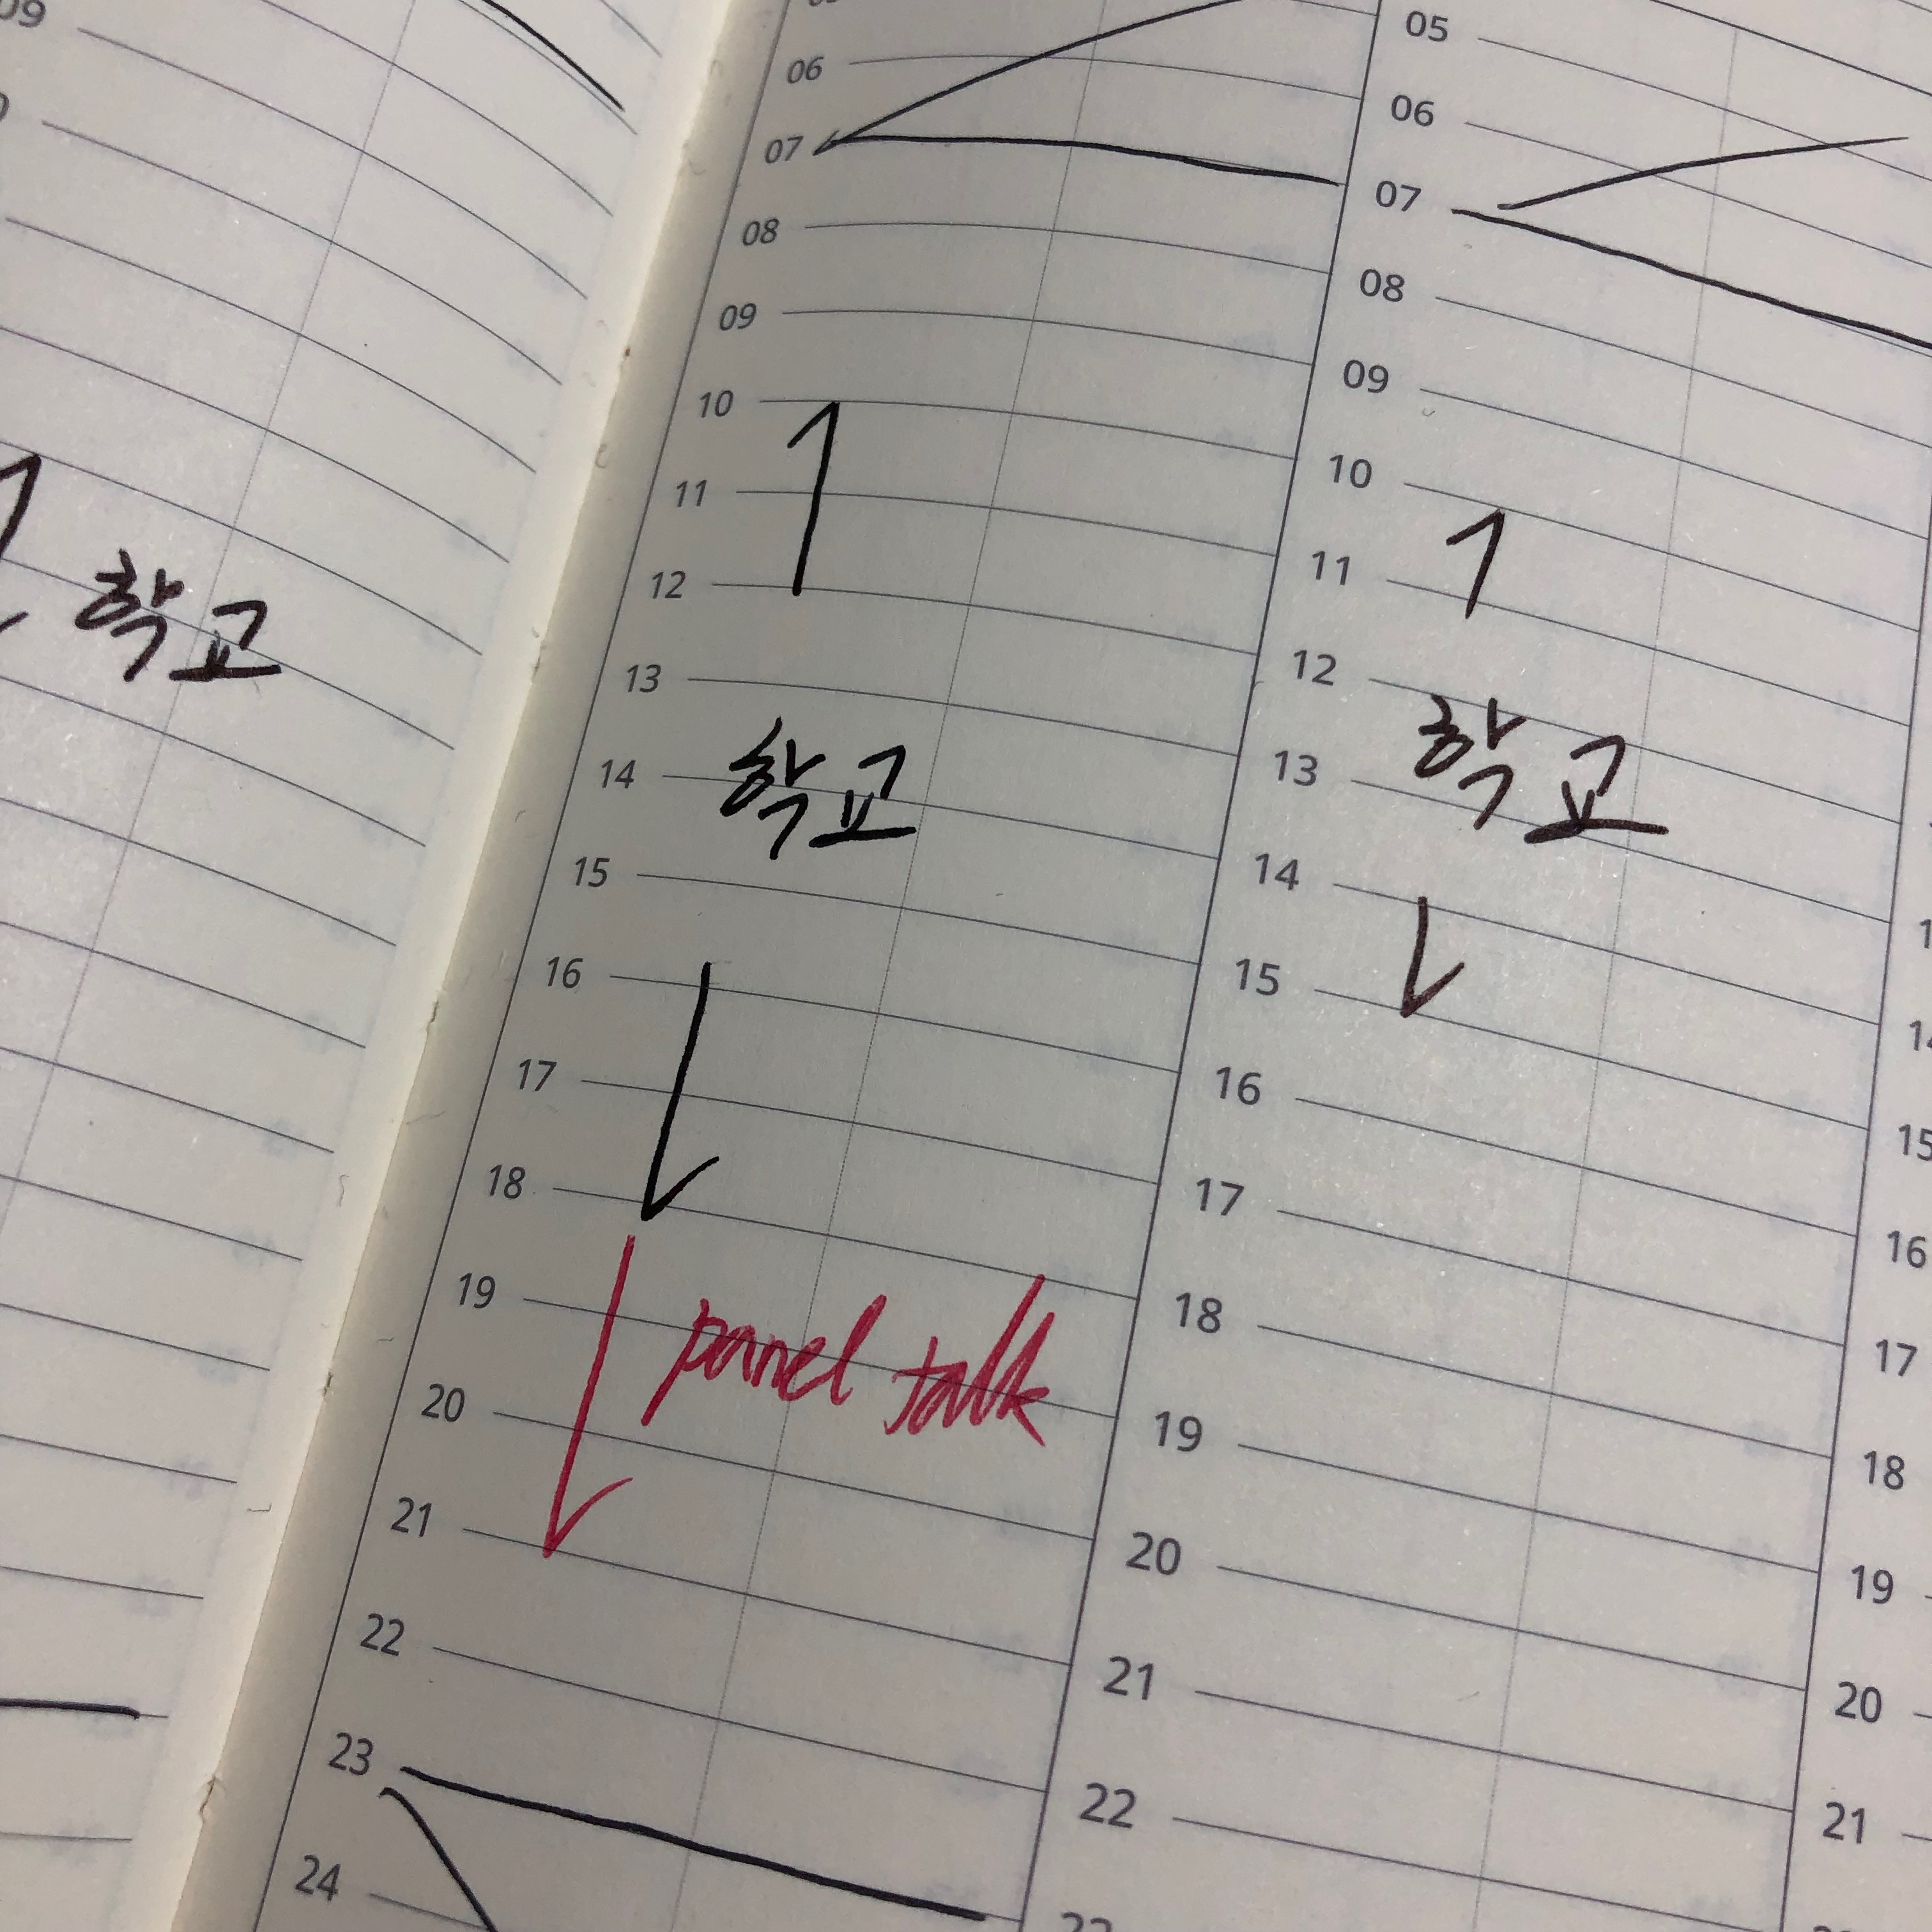 09
학교
06
07
08
09
10
11
12
13
14 학교
15
16
17
18
19 panel talk
20
21
22
23
24
05
06
07
08
09
10
11
12
학교
13
14
15
16
17
18
19
20
21
22
14
15
16
17
18
19
20
21